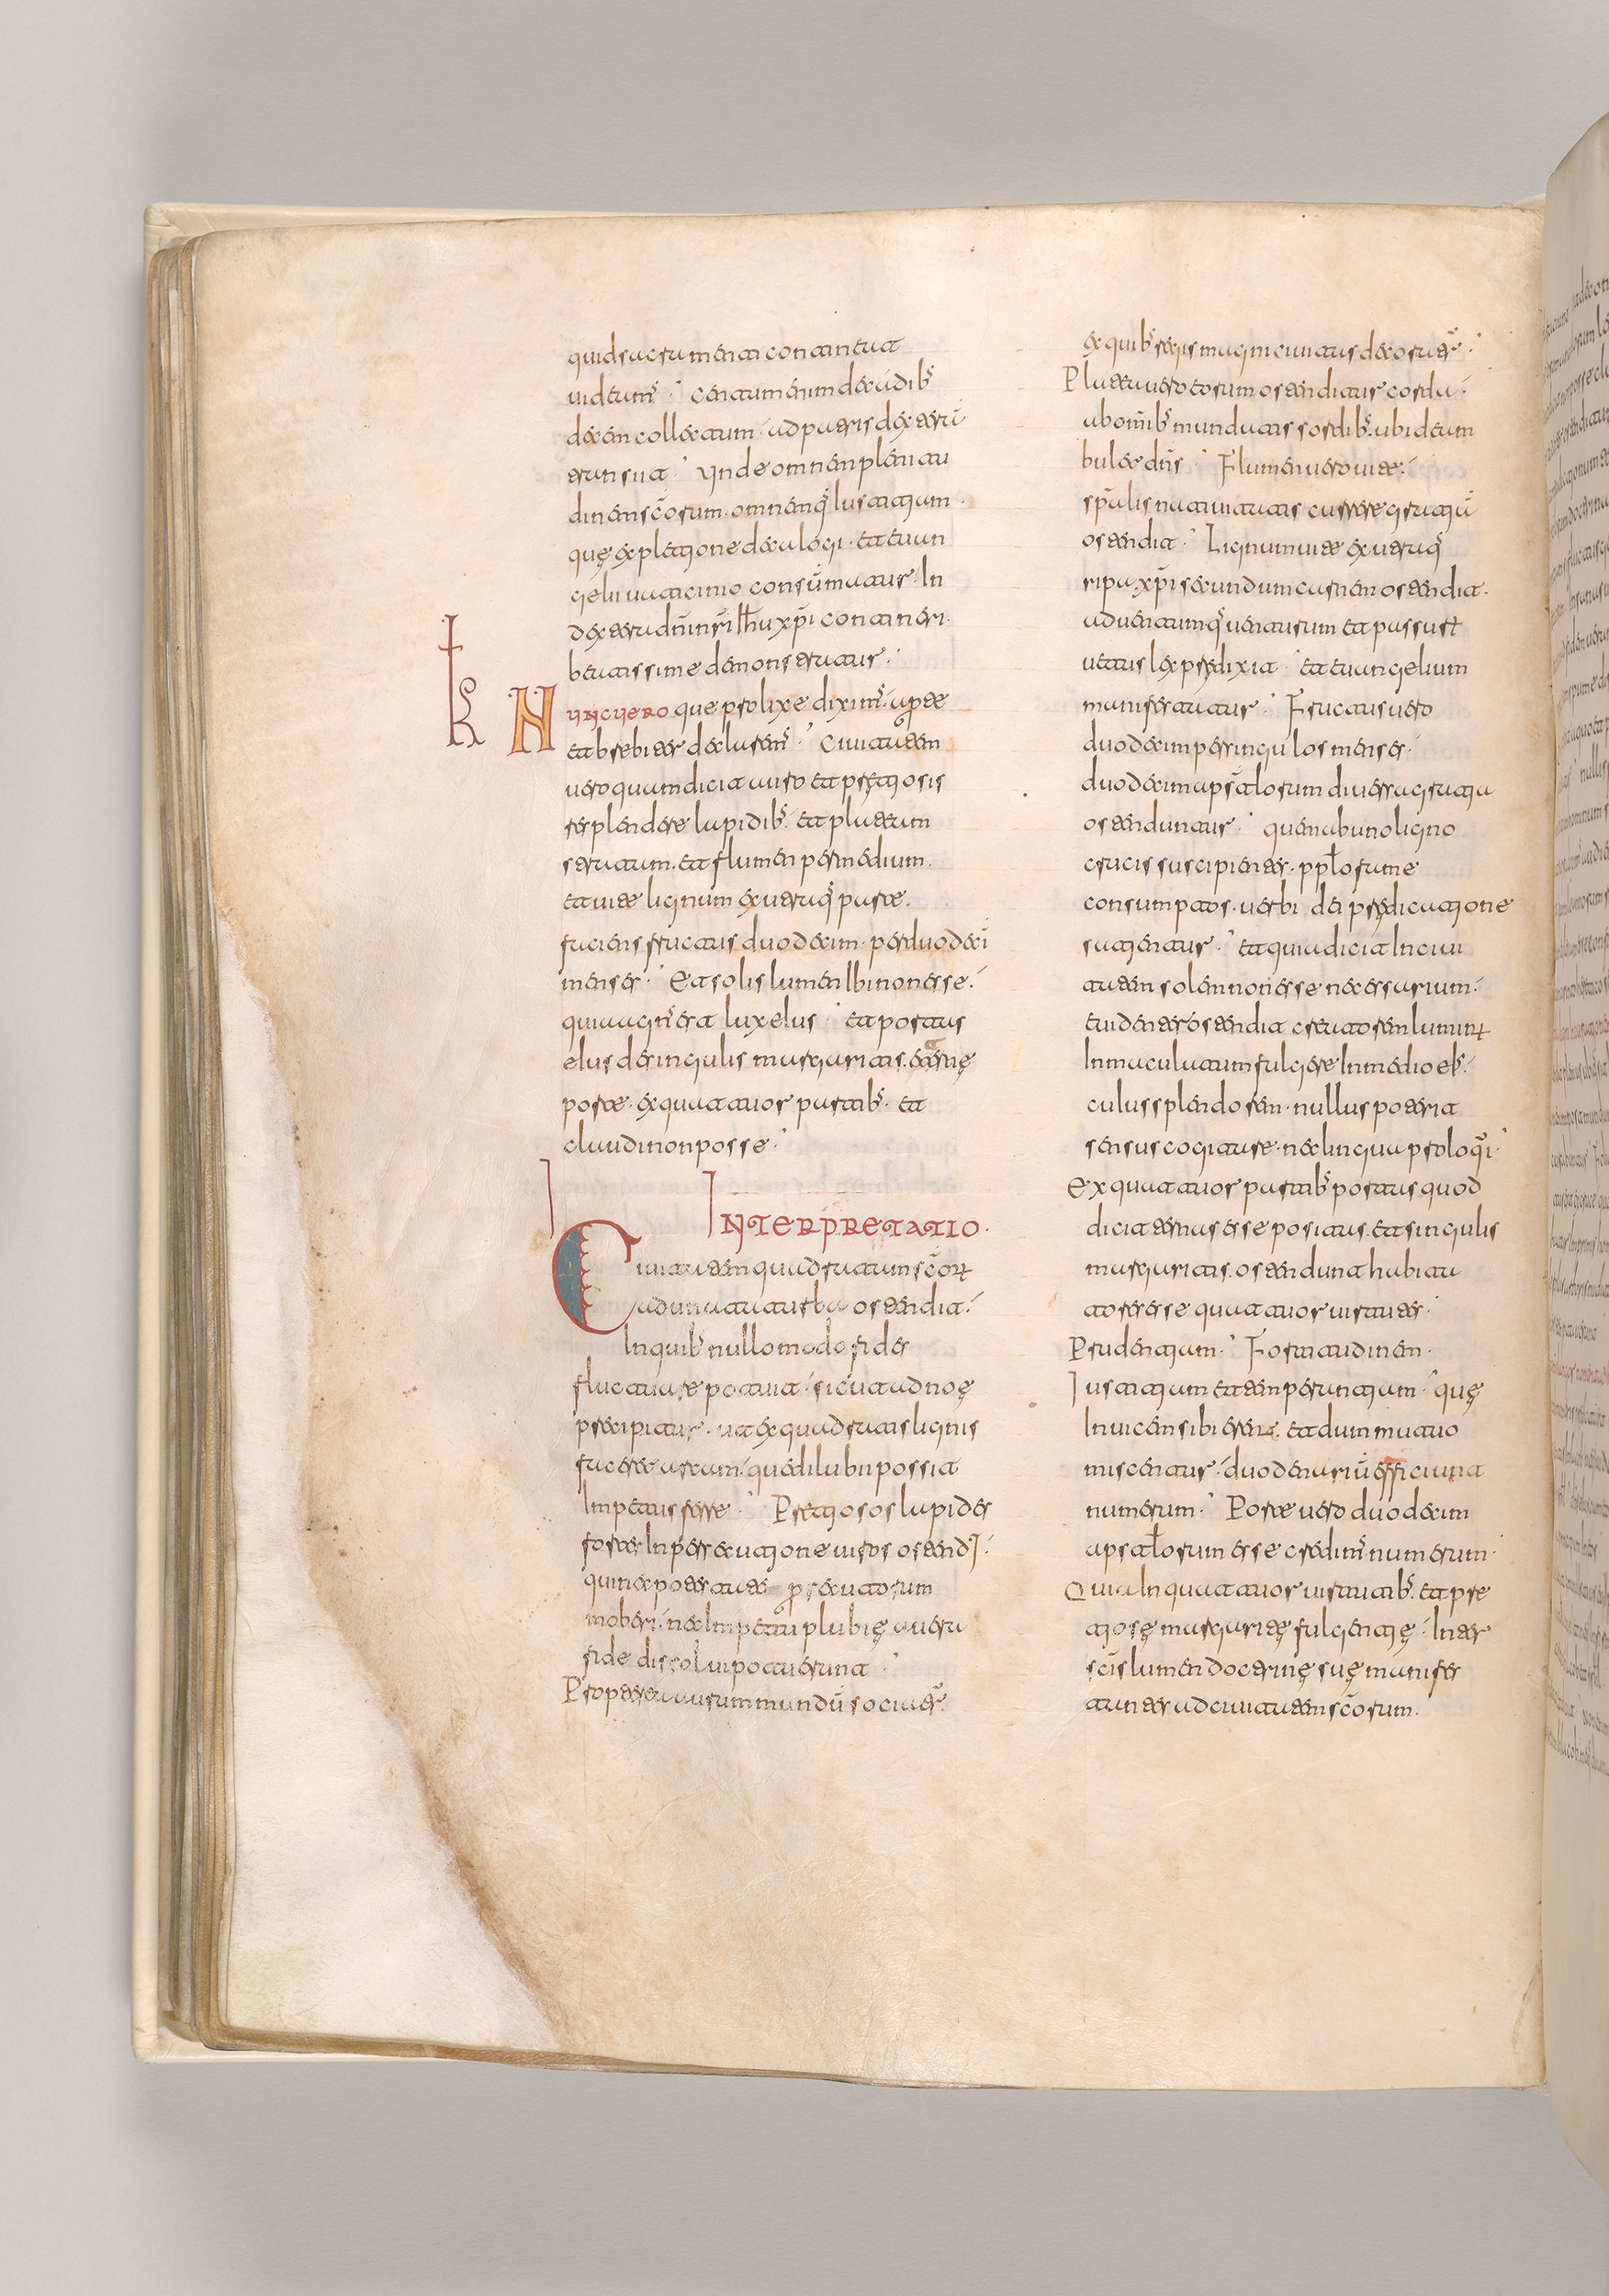 quid sacramenti contineat
videam᷒. Centum enim decadib᷒
decem collectum ad partis dexterā
transiit. Unde omnem pleni tu
dinem scōrum omnemq᷒ iustitiam
quę expletione decalogi. et euan
gelii uaticinio consūmatur. In
dextera dnī nsī ihū xpī contineri.
breuissime demonstratur.
NUNC UERO que prolixe dixim᷒ aperte
et breuiter declarem᷒. Ciuitatem
uero quam dicit auro et pretiosis
resplendere lapidib᷒. et plateam
stratam. et flumen per medium.
et uite lignum ex utraq᷒ parte.
faciens fructus duodecim. per duodecī
menses. Et solis lumen Ibi non esse.
quia agn᷒ est lux eius. et portas
eius de singulis margaritis. et ternę
porte. ex quattuor partib᷒. et
claudi non posse.
INTERPRETATIO.
Ciuitatem quadratam scōrꝝ
adunatam turbam ostendit.
In quib᷒ nullo modo fides
fluctuare potuit. sicut ad noę
precipitur. ut ex quadratis lignis
faceret arcam. que dilubii possit
Impetus ferre. Pretiosos lapides
fortes In persecutione uiros ostendit.
moberi. nec Impetu plubię a uera
fide dissolui potuerunt.
Propterea aurum mundū sociat᷒.
ex quib᷒ regis magni ciuitas decoratur.
Platea uero eorum ostenditur corda.
ab omīb᷒ mundata sordib᷒. ubi deam
bulet dns̄. Flumen uero uite.
spīalis natiuitatis currere gratiā
ostendit. Lignum uite ex utraq᷒
ripa xpī secundum carnem ostendit.
ad uenturumq᷒ uenturum et passur̄
uetus lex predixit. et euangelium
manifestatur. Fructus uero
duodecim per singulos menses.
duodecim apstlorum diuersa gratia
ostenduntur. quem ab uno ligno
crucis suscipientes. pplos fame
consumptos. uerbi dei predicatione
satientur. et quia dicit In ciui
tatem solem non esse necessarium.
euidenter ostendit creatorem luminꝝ
Inmaculatum fulgere In medio ei᷒.
cuius splendorem. nullus poterit
sensus cogitare. nec lingua proloqui.
Ex quattuor partib᷒ portas quod
dicit ternas esse positas. et singulis
margaritis. ostendunt habita
tores esse quattuor uirtutes.
Prudentiam. Fortitudinem.
Iustitiam et temperantiam. quę
Inuicem sibi erent. et dum mutuo
miscentur. duodenariū efficiunt
numerum. Porte uero duodecim
apstlorum esse credim᷒ numerum.
Quia In quattuor uirtutib᷒. et pre
tiosę margaritę fulgentię. Inter
scīs lumen doctrinę suę manifes
tantes ad ciuitatem scōrum.